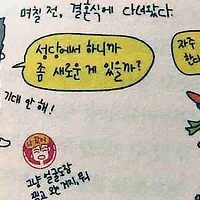 며칠 전, 결혼식에 다녀왔다.
성당에서 하니까
좀 새로운 게 있을까?
자주
한다
기대 안 해!
그냥 얼굴도장
찍고 와 거지, 뭐